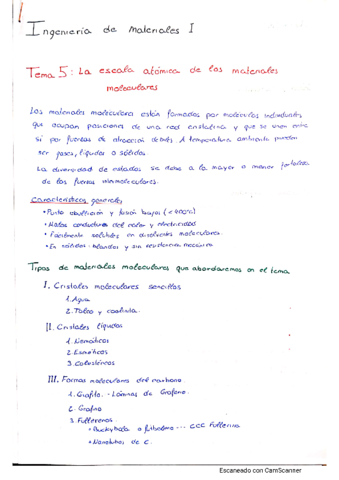 Ingeniería de Materiales I
Tema 5: La escala atómica de los materiales
moleculares
Los materiales moleculares están formados por moléculas individuales
que ocupan posiciones de una red cristalina y que se unen entre
sí por fuerzas de atracción débiles. A temperatura ambiente pueden
ser gases, líquidos o sólidos.
La diversidad de estados se debe a la mayor o menor fortaleza
de las fuerzas intermoleculares.
Características generales
• Punto ebullición y fusión bajos (<300ºC)
• Malos conductores del calor y electricidad
• Fácilmente solubles en disolventes moleculares
• En sólidos blandos y sin resistencia mecánica
Tipos de materiales moleculares que abordaremos en el tema
I. Cristales moleculares sencillos
1. Agua
2. Talco y caolinita
II. Cristales líquidos
1. Nemáticos
2. Esméticos
3. Colestéricos
III. Formas moleculares del carbono
1. Grafito - Láminas de Grafeno
2. Grafeno
3. Fullerenos
• Buckybola o futboleno -- CCC Fullerita
• Nanotubos de C.
Escaneado con CamScanner